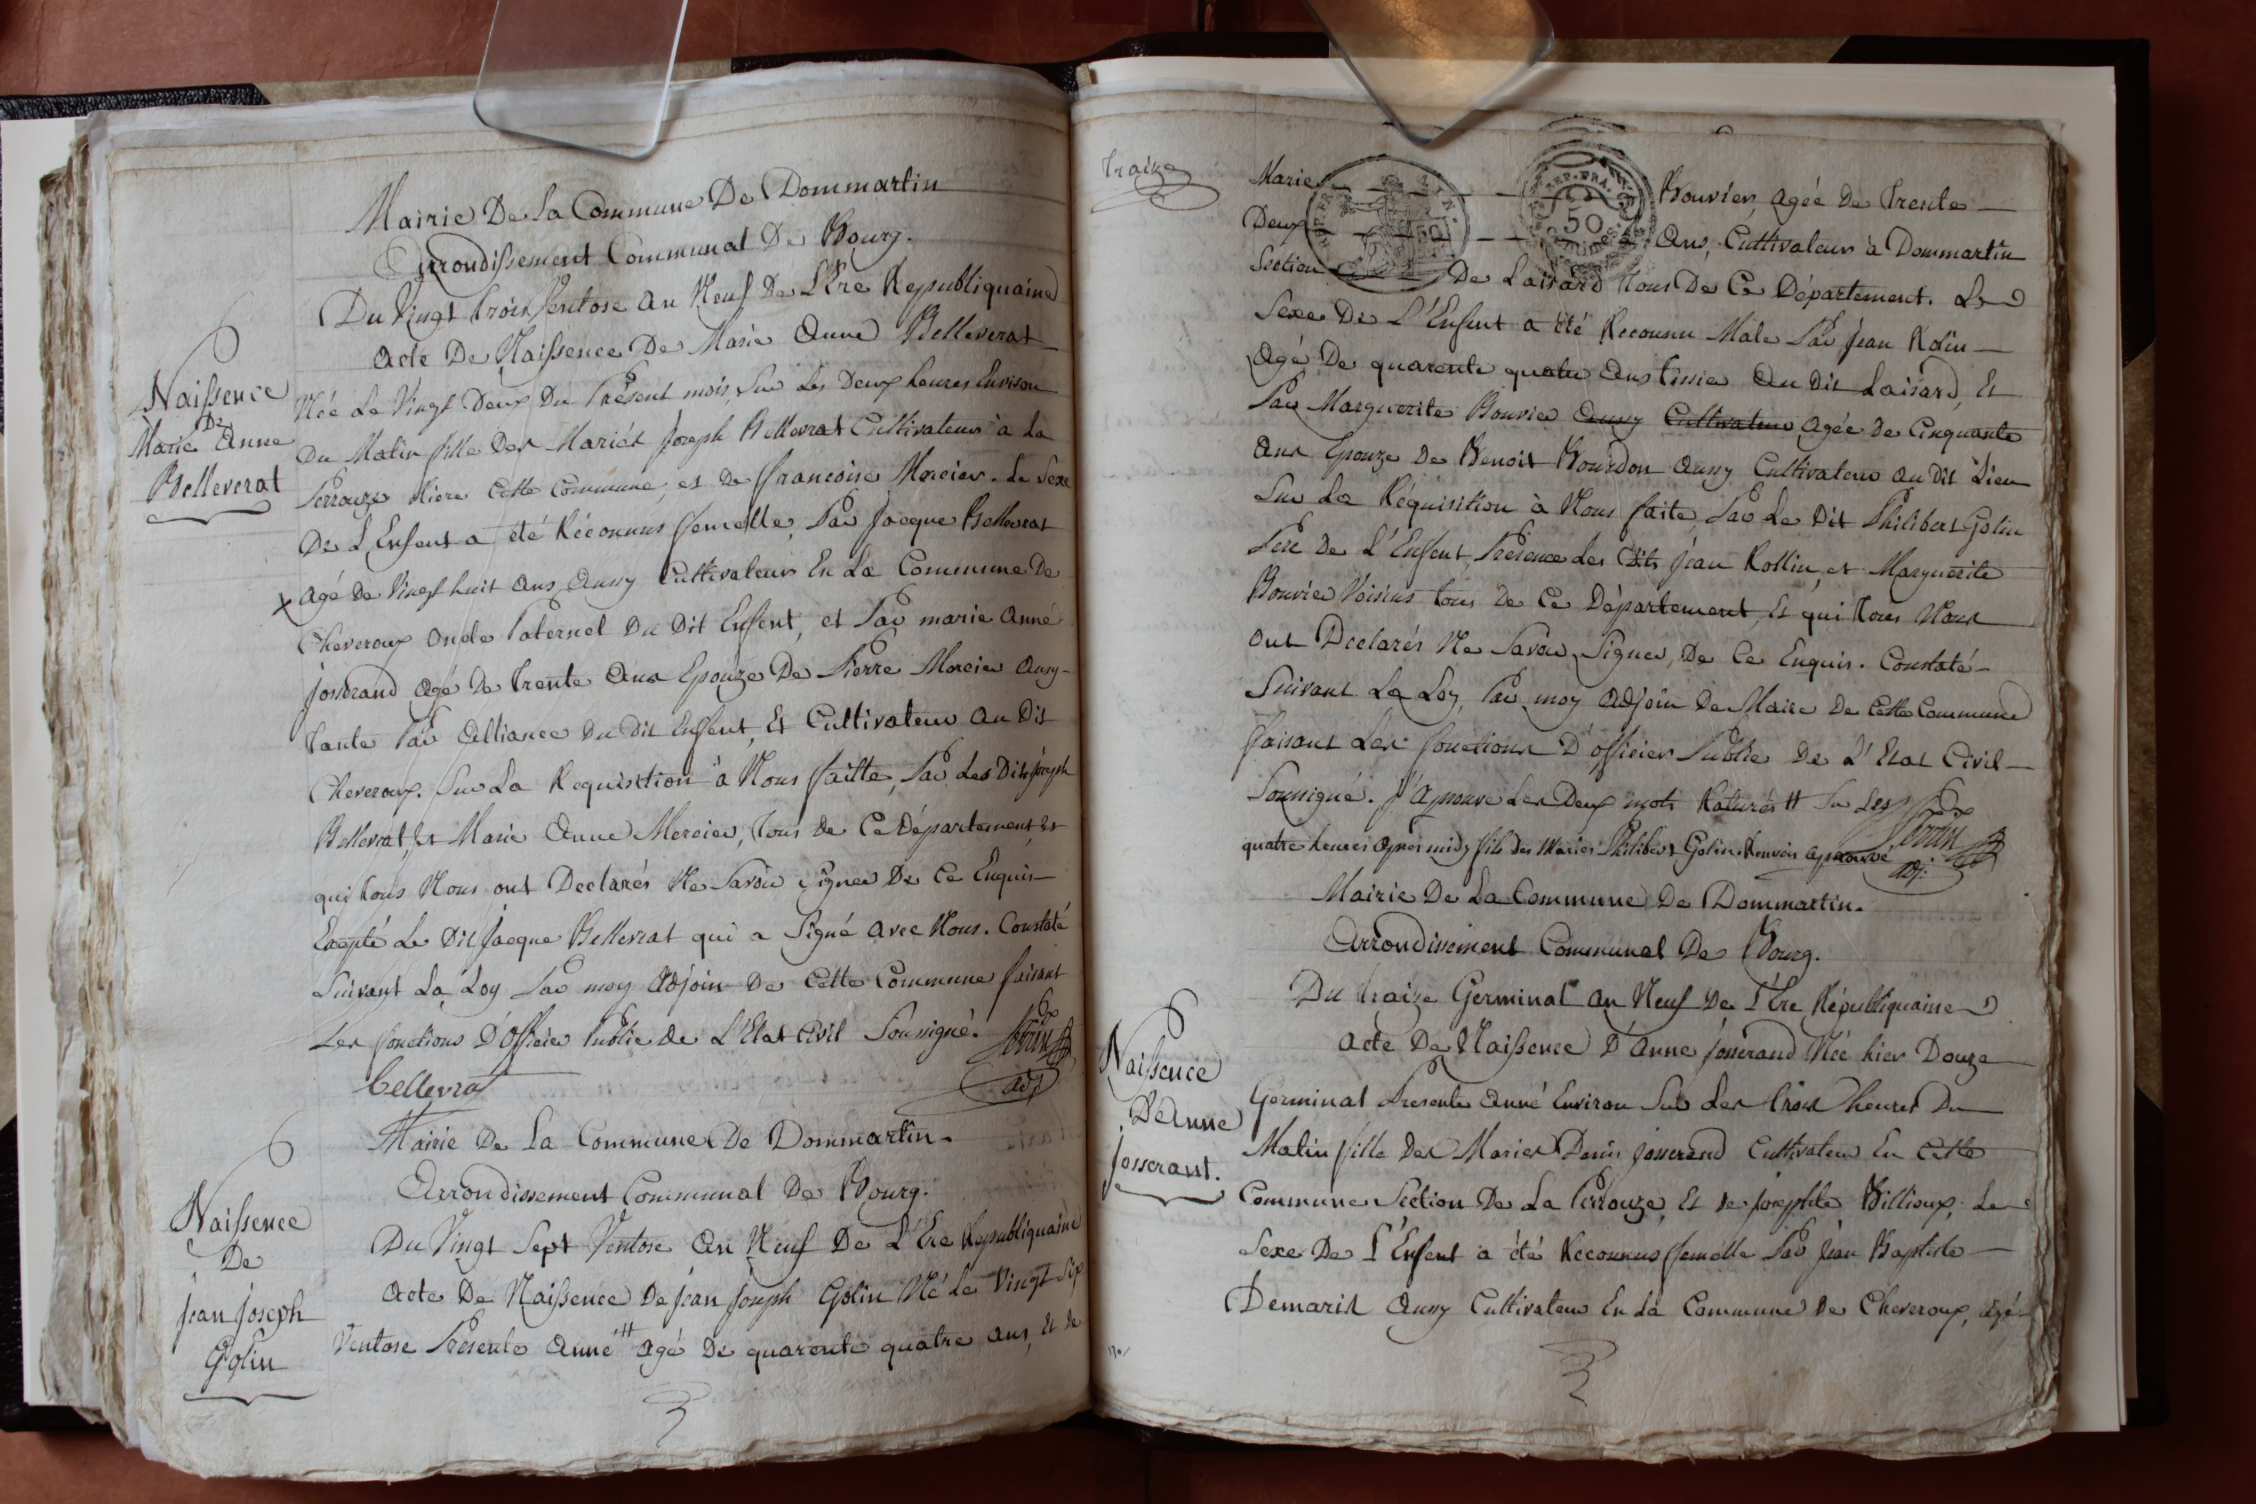 Mairie De La Commune De Dommartin
Arrondissement Communal De Bourg.
Du Vingt Trois Ventose an Neuf De L'Ere Republiquaine
Acte De Naissence De Marie Anne Belleverat
Naissence
De
Marie Anne
Belleverat
Née Le Vingt Deux Du Present mois, Sur Les Deux heures Environ
Du Matin fille Des Mariés Joseph Bellevrat Cultivateur à La
Perrouze cette Commune, et De francoise Mercier. Le Sexe
De L'Enfent a été Réconnus femelle, Par Jacque Bellevrat
Agé De Vingt huit ans, Aussy Cultivateur En La Commune De
Cheveroux Oncle Paternel Du Dit Enfent, et Par marie Anne
Josserand Agé De Trente Ans Epouze De Pierre Mercier Aussy
Tante Par Alliance Du Dit Enfent, Et Cultivateur Au Dit
Cheveroux. Sur La Requisition à Nous faitte, Par Les Dits Joseph
Bellevrat, Et Marie Anne Mercier, Tous De Ce Département, Et
qui Tous Nous ont Declarés Ne Savoir Signer De Ce Enquis
Excepté Le Dit Jacque Bellevrat qui a Signé Avec Nous. Constaté
Suivant La Loy Par moy Adjoin De Cette Commune faisant
Les fonctions D'Officier Public De L'Etat Civil Soussigné.
bellevrat
adj
Mairie De La Commune De Dommartin.
Arrondissement Communal De Bourg.
Du Vingt Sept Ventose An Neuf De L'Ere Republiquaine
Naissence
De
Jean Joseph
Golin
Acte De Naissence De Jean Joseph Golin Né Le Vingt Six
Ventose Presente Anné # agé De quarente quatre ans, Et de
Traize
Marie Bouvier, agée De Trente
Deux Ans, Cultivateur à Dommartin
Section De Laisard Tous De Ce Département. Le
REP. FRA.
50
Sexe De L'Enfent a été Reconnu Male Par Jean Rolin
Agé De quarente quatre Ans Tissier Au Dit Laisard, Et
Par Marguerite Bouvier Aussy Cultivateur Agée de Cinquante
Ans Epouze De Benoit Bourdon Aussy Cultivateur Au Dit Lieu
Sur La Réquisition à Nous faite, Par Le Dit Philibert Golin
Pere De L'Enfent, Présence Les Dits Jean Rollin, et Marguerite
Bouvier Voisins Tous De Ce Département, Et qui Tous Nous
Ont Declarés Ne Savoir Signer, De Ce Enquis. Constaté
Suivant La Loy, Par moy Adjoin De Maire De Cette Commune
faisant Les fonctions D'officier Public De L'Etat Civil
Soussigné. J'Aprouve Les Deux mots Raturés # Sur Les
quatre heures Aprés midy fils Des Mariés Philibert Golin. Renvoix Aprouvé
adj.
Mairie De La Commune De Dommartin.
Arrondissement Communal De Bourg.
Du Traize Germinal an Neuf De L'Ere Républiquaine
Naissence
De Anne
Josserant.
Acte De Naissence D'Anne Josserand Née hier Douze
Germinal Presente Anné Environ Sur Les Trois heures Du
Matin fille Des Mariés Denis Josserand Cultivateur En Cette
Commune Section De La Perrouze, Et de Josephte Billioux. Le
Sexe De L'Enfent a été Reconnus femelle Par Jean Baptiste
Demaris Aussy Cultivateur En La Commune De Cheveroux, agé